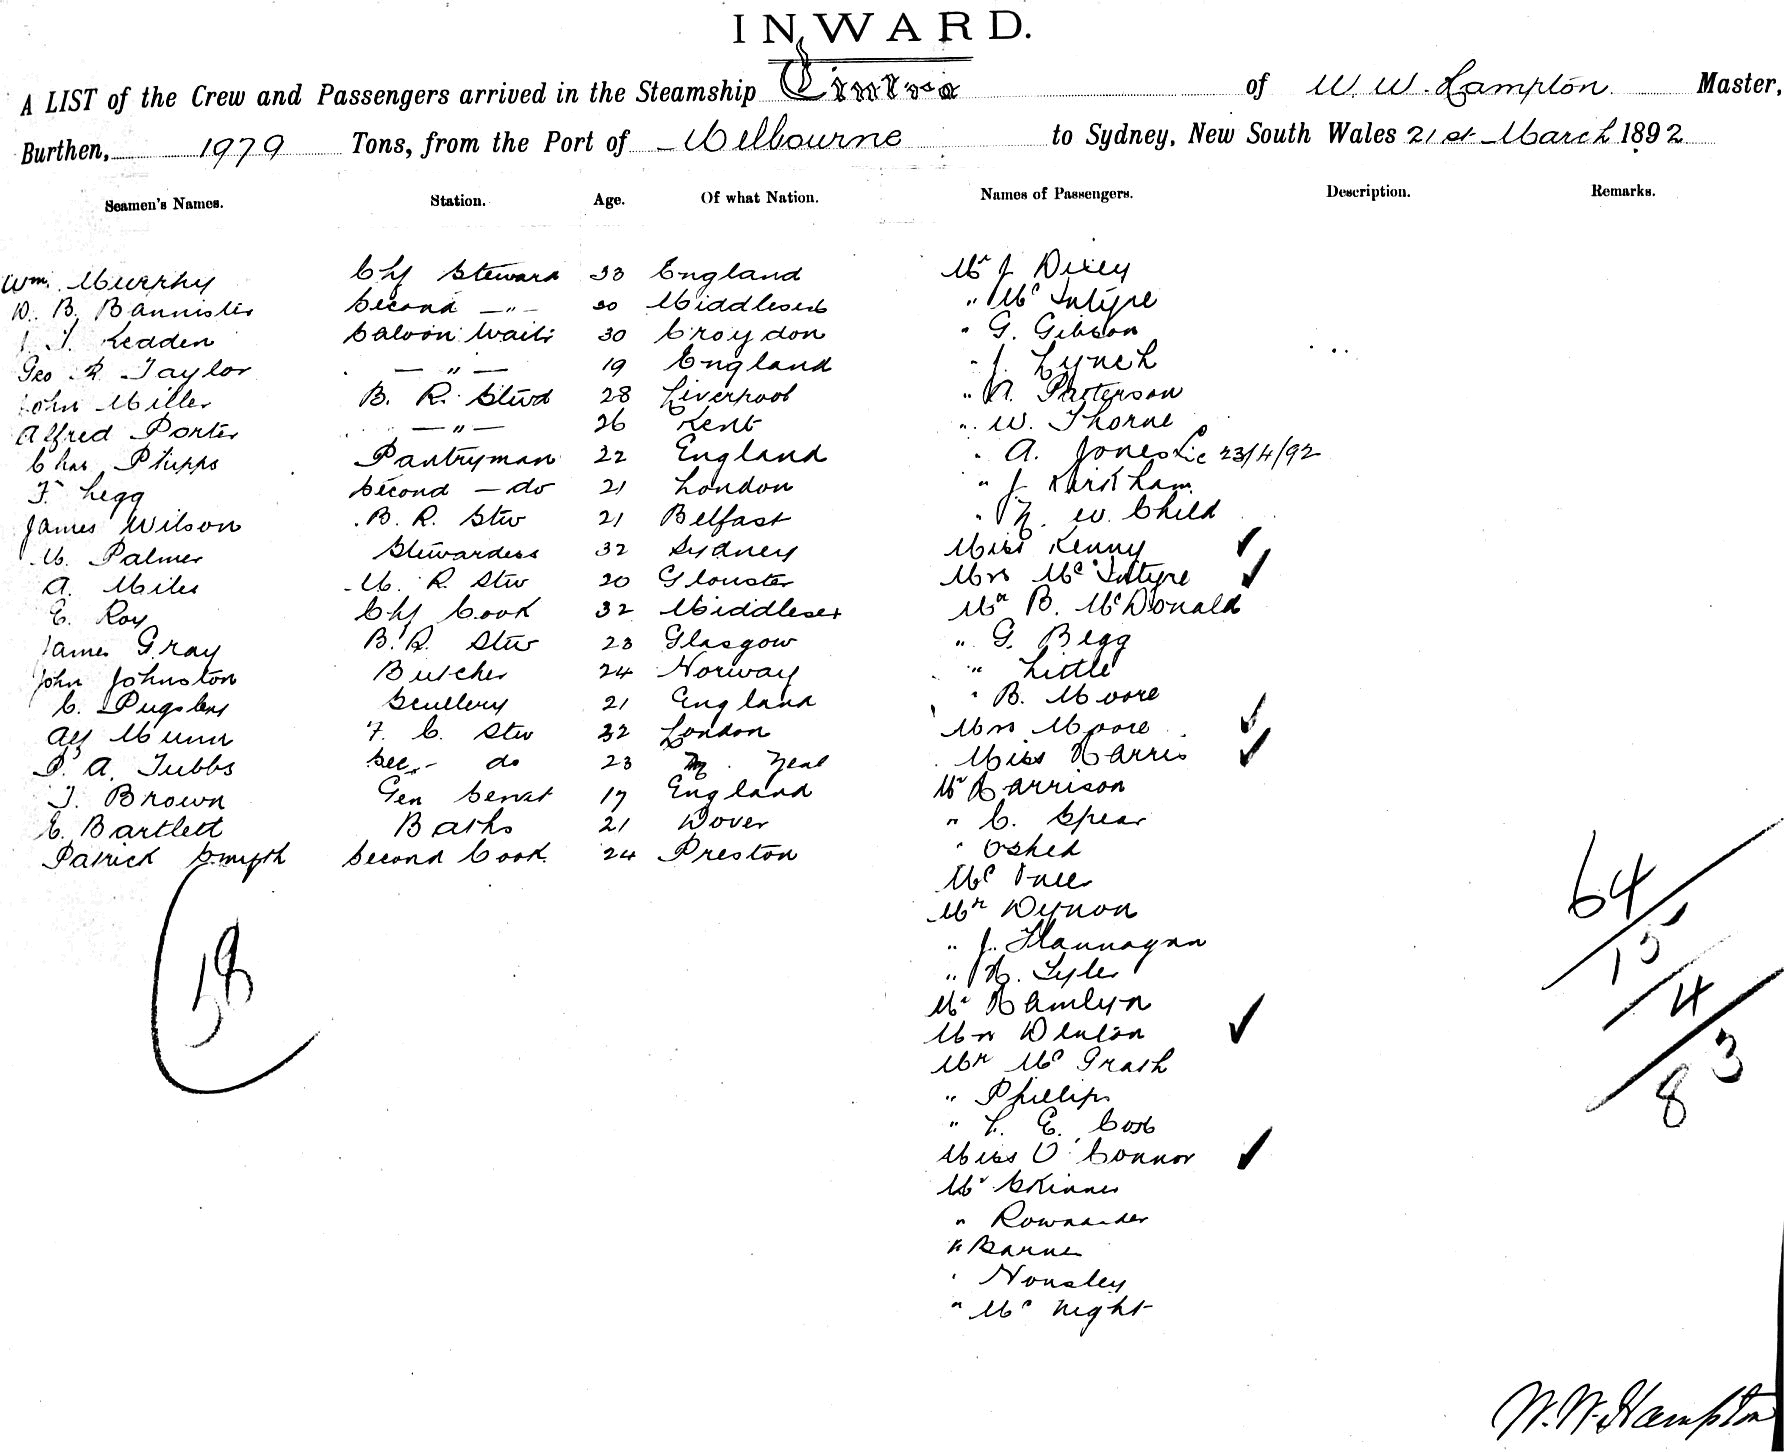 INWARD.
A LIST of the Crew and Passengers arrived in the Steamship Cintra of W. W. Hampton Master,
Burthen, 1979 Tons, from the Port of Melbourne to Sydney, New South Wales 21st March 1892
Seamen's Names. Station. Age. Of what Nation. Names of Passengers. Description. Remarks.
Wm. Murphy Chf Steward 33 England Mr J Dixey
D. B. Bannister Second —"— 30 Middlesex " Mc Intyre
J. Kedden Saloon Waitr 30 Croydon " G. Gibson
Geo R. Taylor —"— 19 England " J. Lynch
John Miller B. R. Stwd 28 Liverpool " Patterson
Alfred Porter —"— 26 Kent " W. Thorne
Chas Phipps Pantryman 22 England " A. Jones Lic 23/4/92
F. Legg Second — do 21 London " J Kirkham
James Wilson B. R. Stw 21 Belfast " H. W. Child
M. Palmer Stewardess 32 Sydney Miss Kenny ✓
A. Miles M. R. Stw 20 Glouster Mrs Mc Intyre ✓
E. Roy Chf Cook 32 Middlesex Mr B. McDonald
James Gray B. R. Stw 23 Glasgow " G. Begg
John Johnston Butcher 24 Norway " Little
C. Pugsley Scullery 21 England " B. Moore
Alf Munn F. C. Stw 32 London Mrs Moore ✓
P. A. Tubbs Sec - do 23 Zeal Miss Harris ✓
T. Brown Gen Servat 17 England Mr Harrison
E. Bartlett Baths 21 Dover " C. Spear
Patrick Smyth Second Cook 24 Preston " Oshed
Mr Dynon
" J. Flannagan
58
64
15
" H. Tyler
4
Mr Hamlyn
Mrs Denton ✓
83
Mr Mc Grath
" Phillips
" L. E. Cox
Miss O'Connor ✓
Mr Skinner
"
" Barne
" Housley
" Mc Night
W. W. Hampton